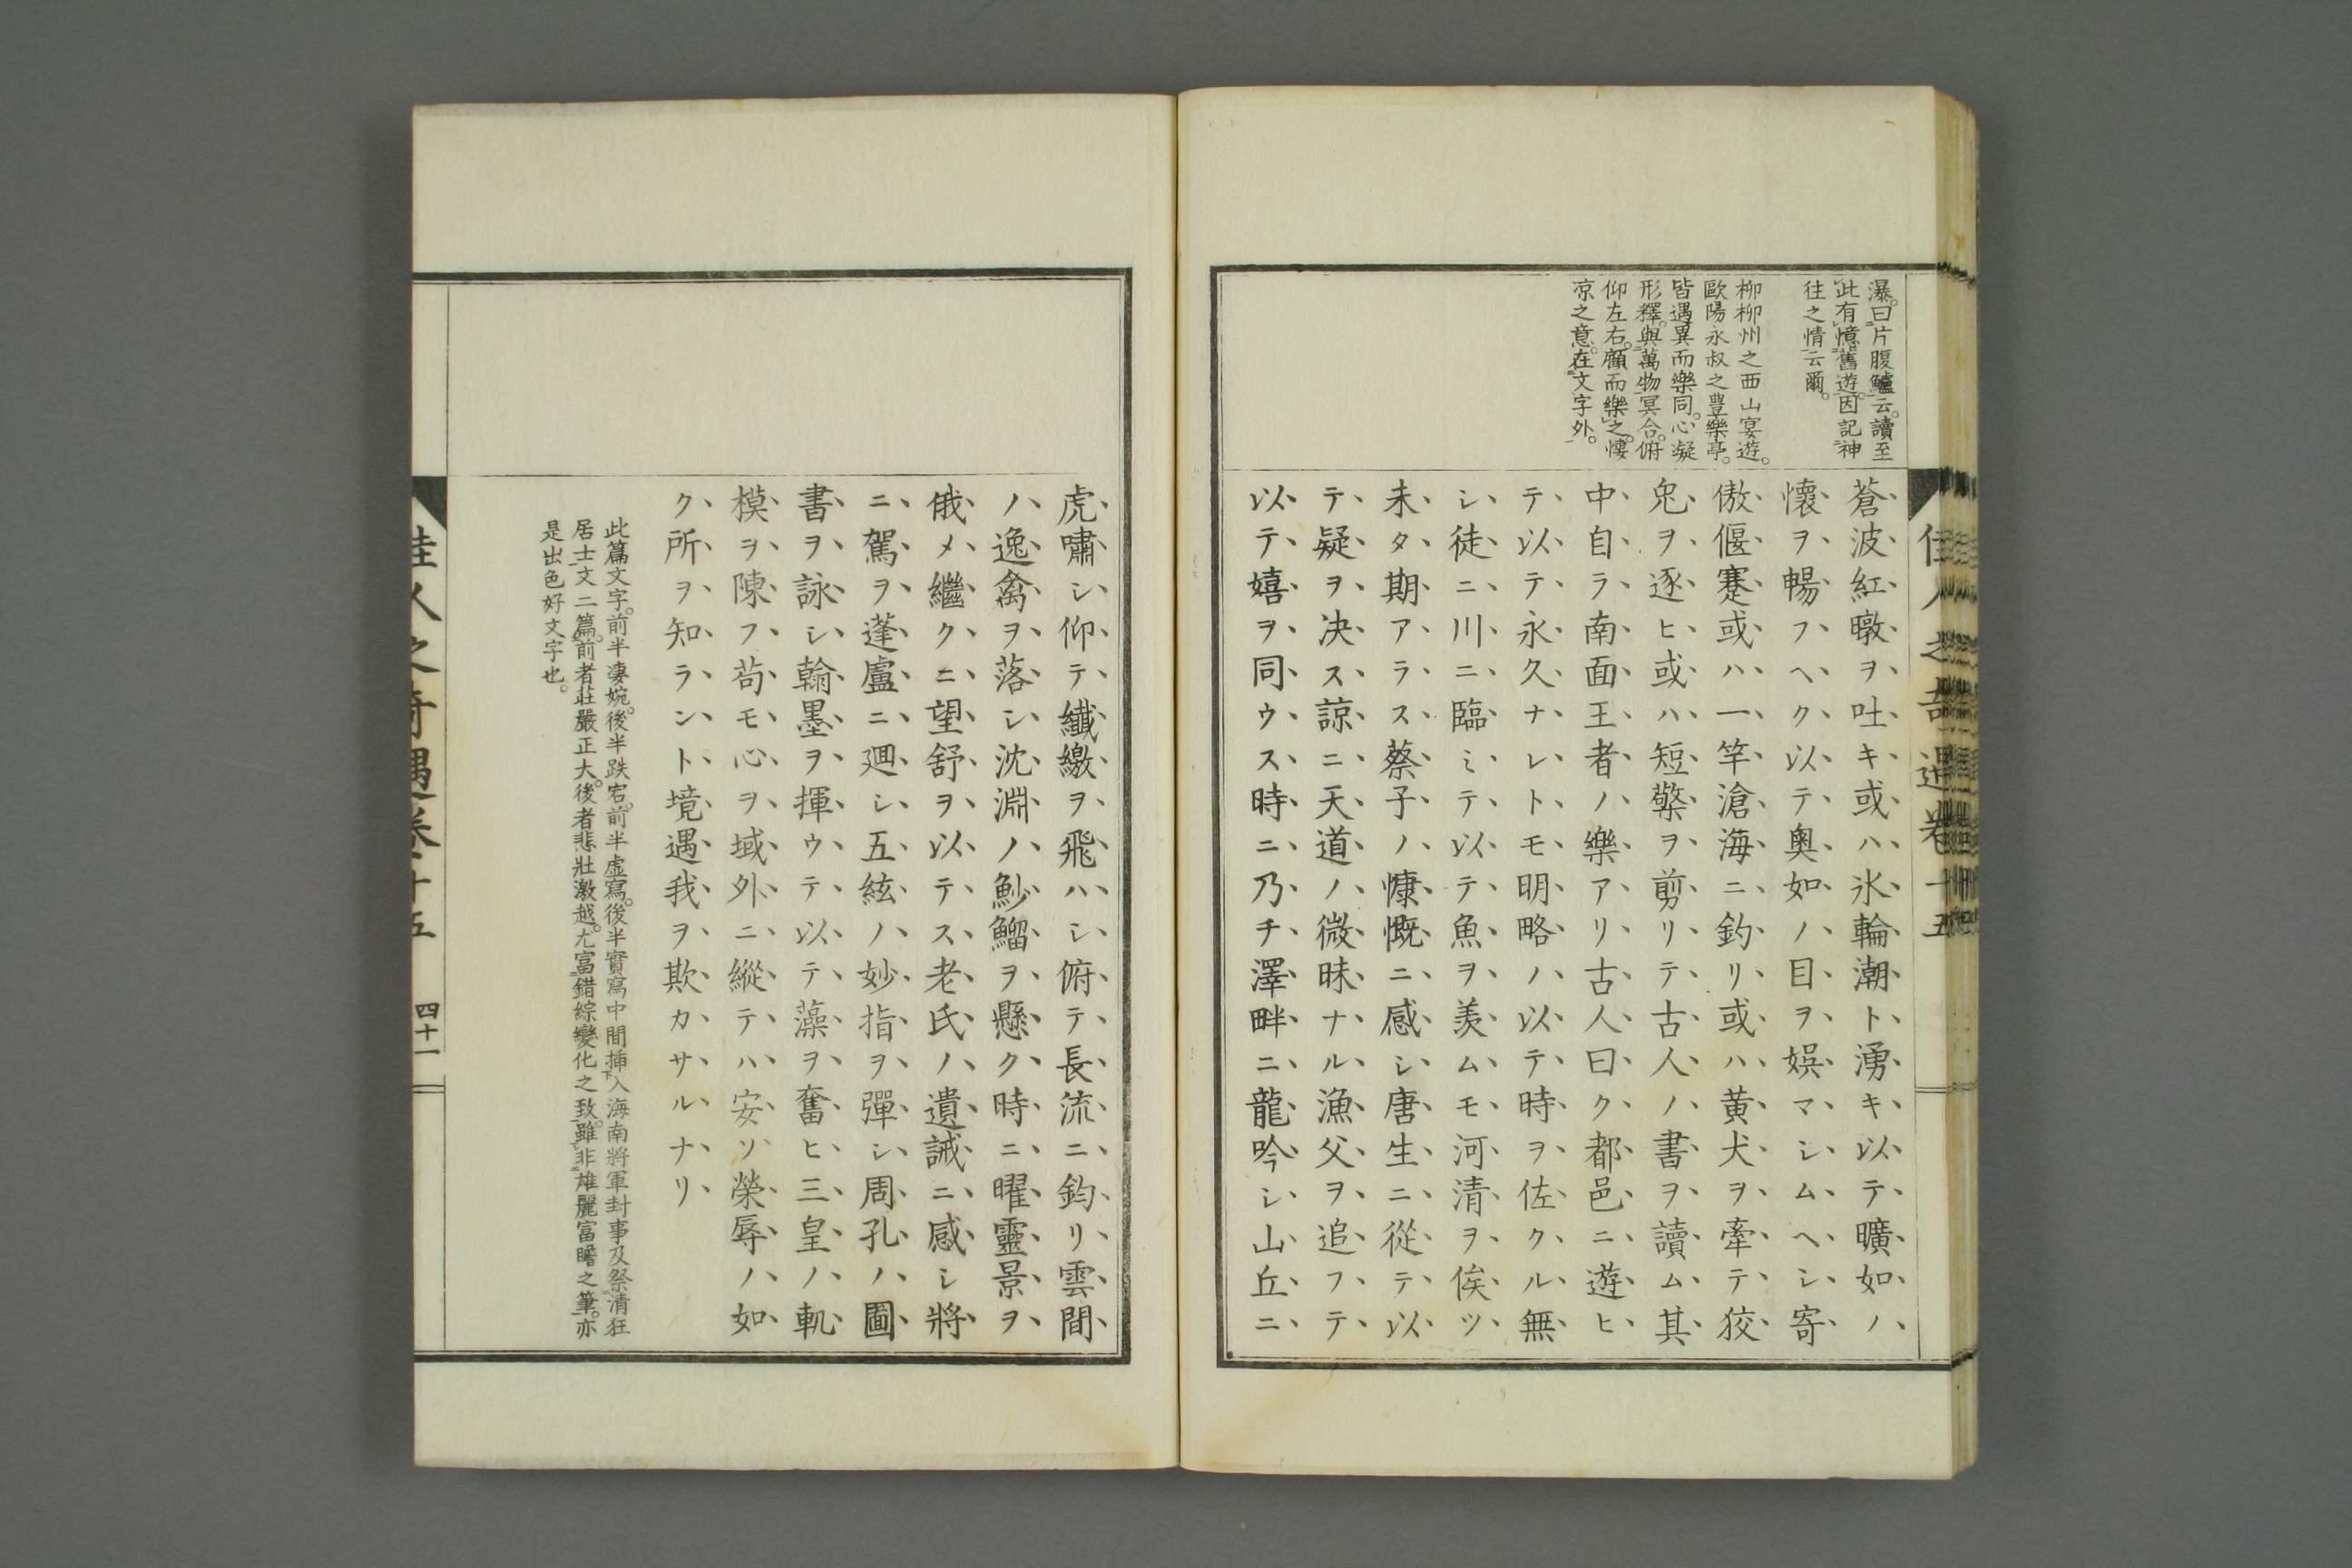 瀑曰片腹鱸云。讀至
此有憶舊遊。因記神
往之情云爾。
柳柳州之西山宴遊。
歐陽永叔之豊樂亭。
皆遇異而樂同。心凝
形釋。與萬物冥合。俯
仰左右。顧而樂之。悽
凉之意。在文字外。
蒼波紅暾ヲ吐キ或ハ氷輪潮ト湧キ以テ曠如ノ
懷ヲ暢フヘク以テ奥如ノ目ヲ娯マシムヘシ寄
傲偃蹇或ハ一竿滄海ニ釣リ或ハ黄犬ヲ牽テ狡
兎ヲ逐ヒ或ハ短檠ヲ剪リテ古人ノ書ヲ讀ム其
中自ラ南面王者ノ樂アリ古人曰ク都邑ニ遊ヒ
テ以テ永久ナレトモ明略ノ以テ時ヲ佐クル無
シ徒ニ川ニ臨ミテ以テ魚ヲ羨ムモ河清ヲ俟ツ
未タ期アラス蔡子ノ慷慨ニ感シ唐生ニ從テ以
テ疑ヲ决ス諒ニ天道ノ微昧ナル漁父ヲ追フテ
以テ嬉ヲ同ウス時ニ乃チ澤畔ニ龍吟シ山丘ニ
佳人之奇遇卷十五
虎嘯シ仰テ纎繳ヲ飛ハシ俯テ長流ニ鈞リ雲間
ノ逸禽ヲ落シ沈淵ノ魦鰡ヲ懸ク時ニ曜靈景ヲ
俄メ繼クニ望舒ヲ以テス老氏ノ遺誡ニ感シ將
ニ駕ヲ蓬廬ニ廻シ五絃ノ妙指ヲ彈シ周孔ノ圖
書ヲ詠シ翰墨ヲ揮ウテ以テ藻ヲ奮ヒ三皇ノ軌
模ヲ陳フ苟モ心ヲ域外ニ縱テハ安ソ榮辱ノ如
ク所ヲ知ラント境遇我ヲ欺カサルナリ
此篇文字。前半凄婉。後半跌宕。前半虚寫。後半實寫中間挿入海南將軍封事及祭清狂
居士文二篇。前者莊嚴正大。後者悲壯激越。尤富錯綜變化之致。雖非雄麗富瞻之筆。亦
是出色好文字也。
佳人之奇遇卷十五 四十一